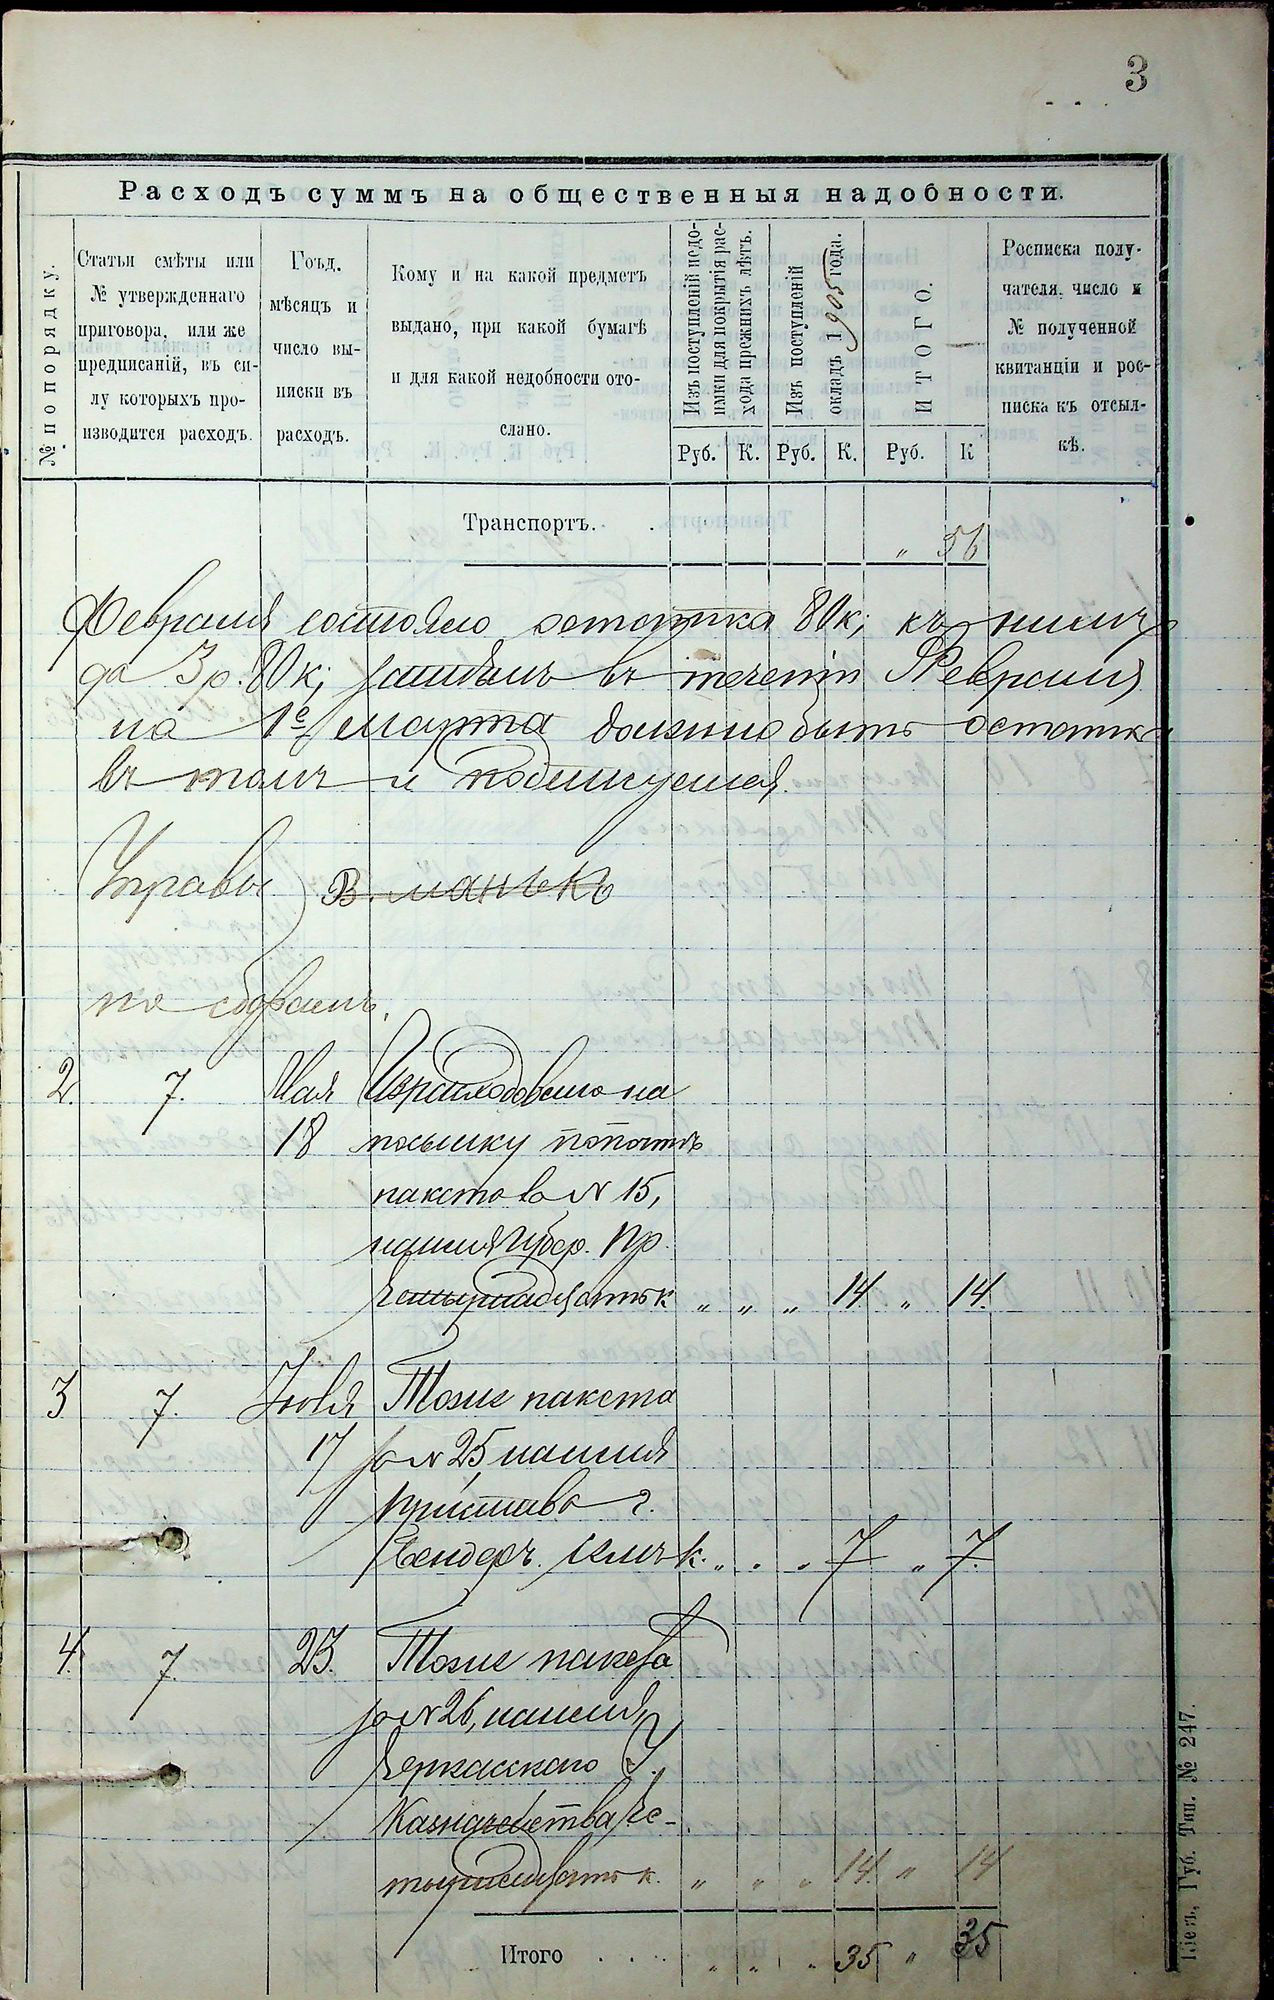 3
Расходъ суммъ на общественныя надобности.
№ по порядку.
Статьи смѣты или
№ утвержденнаго
приговора, или же
предписаній, въ си-
лу которыхъ про-
изводится расходъ.
Гоъд.
мѣсяцъ и
число вы-
писки въ
расходъ.
Кому и на какой предметъ
выдано, при какой бумагѣ
и для какой недобности ото-
слано.
Изъ поступленій недо-
имки для покрытія рас-
хода прежнихъ лѣтъ.
Изъ поступленій
окладъ 1905 года.
ИТОГО.
Росписка полу-
чателя, число и
№ полученной
квитанціи и рос-
писка къ отсыл-
кѣ.
Руб. К. Руб. К. Руб. К
Транспортъ. . „ 56
Февраля состояло остатка 80к; къ нимъ
да 3 р. 80 к; въ теченіи Февраля
на 1е марта должно быть остатка
въ томъ и подписуемся.
Управы В. манъкъ
по сборамъ.
2. 7. Мая Израсходовано на
18 посылку по почтѣ
пакетовъ № 15,
Губер. Пр.
Четырнадцать к „ „ „ 14 „ 14.
3 7. Іюня Тоже пакета
17 за № 25 на имя
Пристава г.
Бендеръ. семь к. „ . . 7 „ 7.
4. 7. 23. Тоже пакета
за № 26, на имя
Черкасского У.
Казначейства Че-
тырнадцать к. „ „ „ 14 „ 14
Итого . . . „ „ „ 35 „ 35
Губ. Тип. № 247.